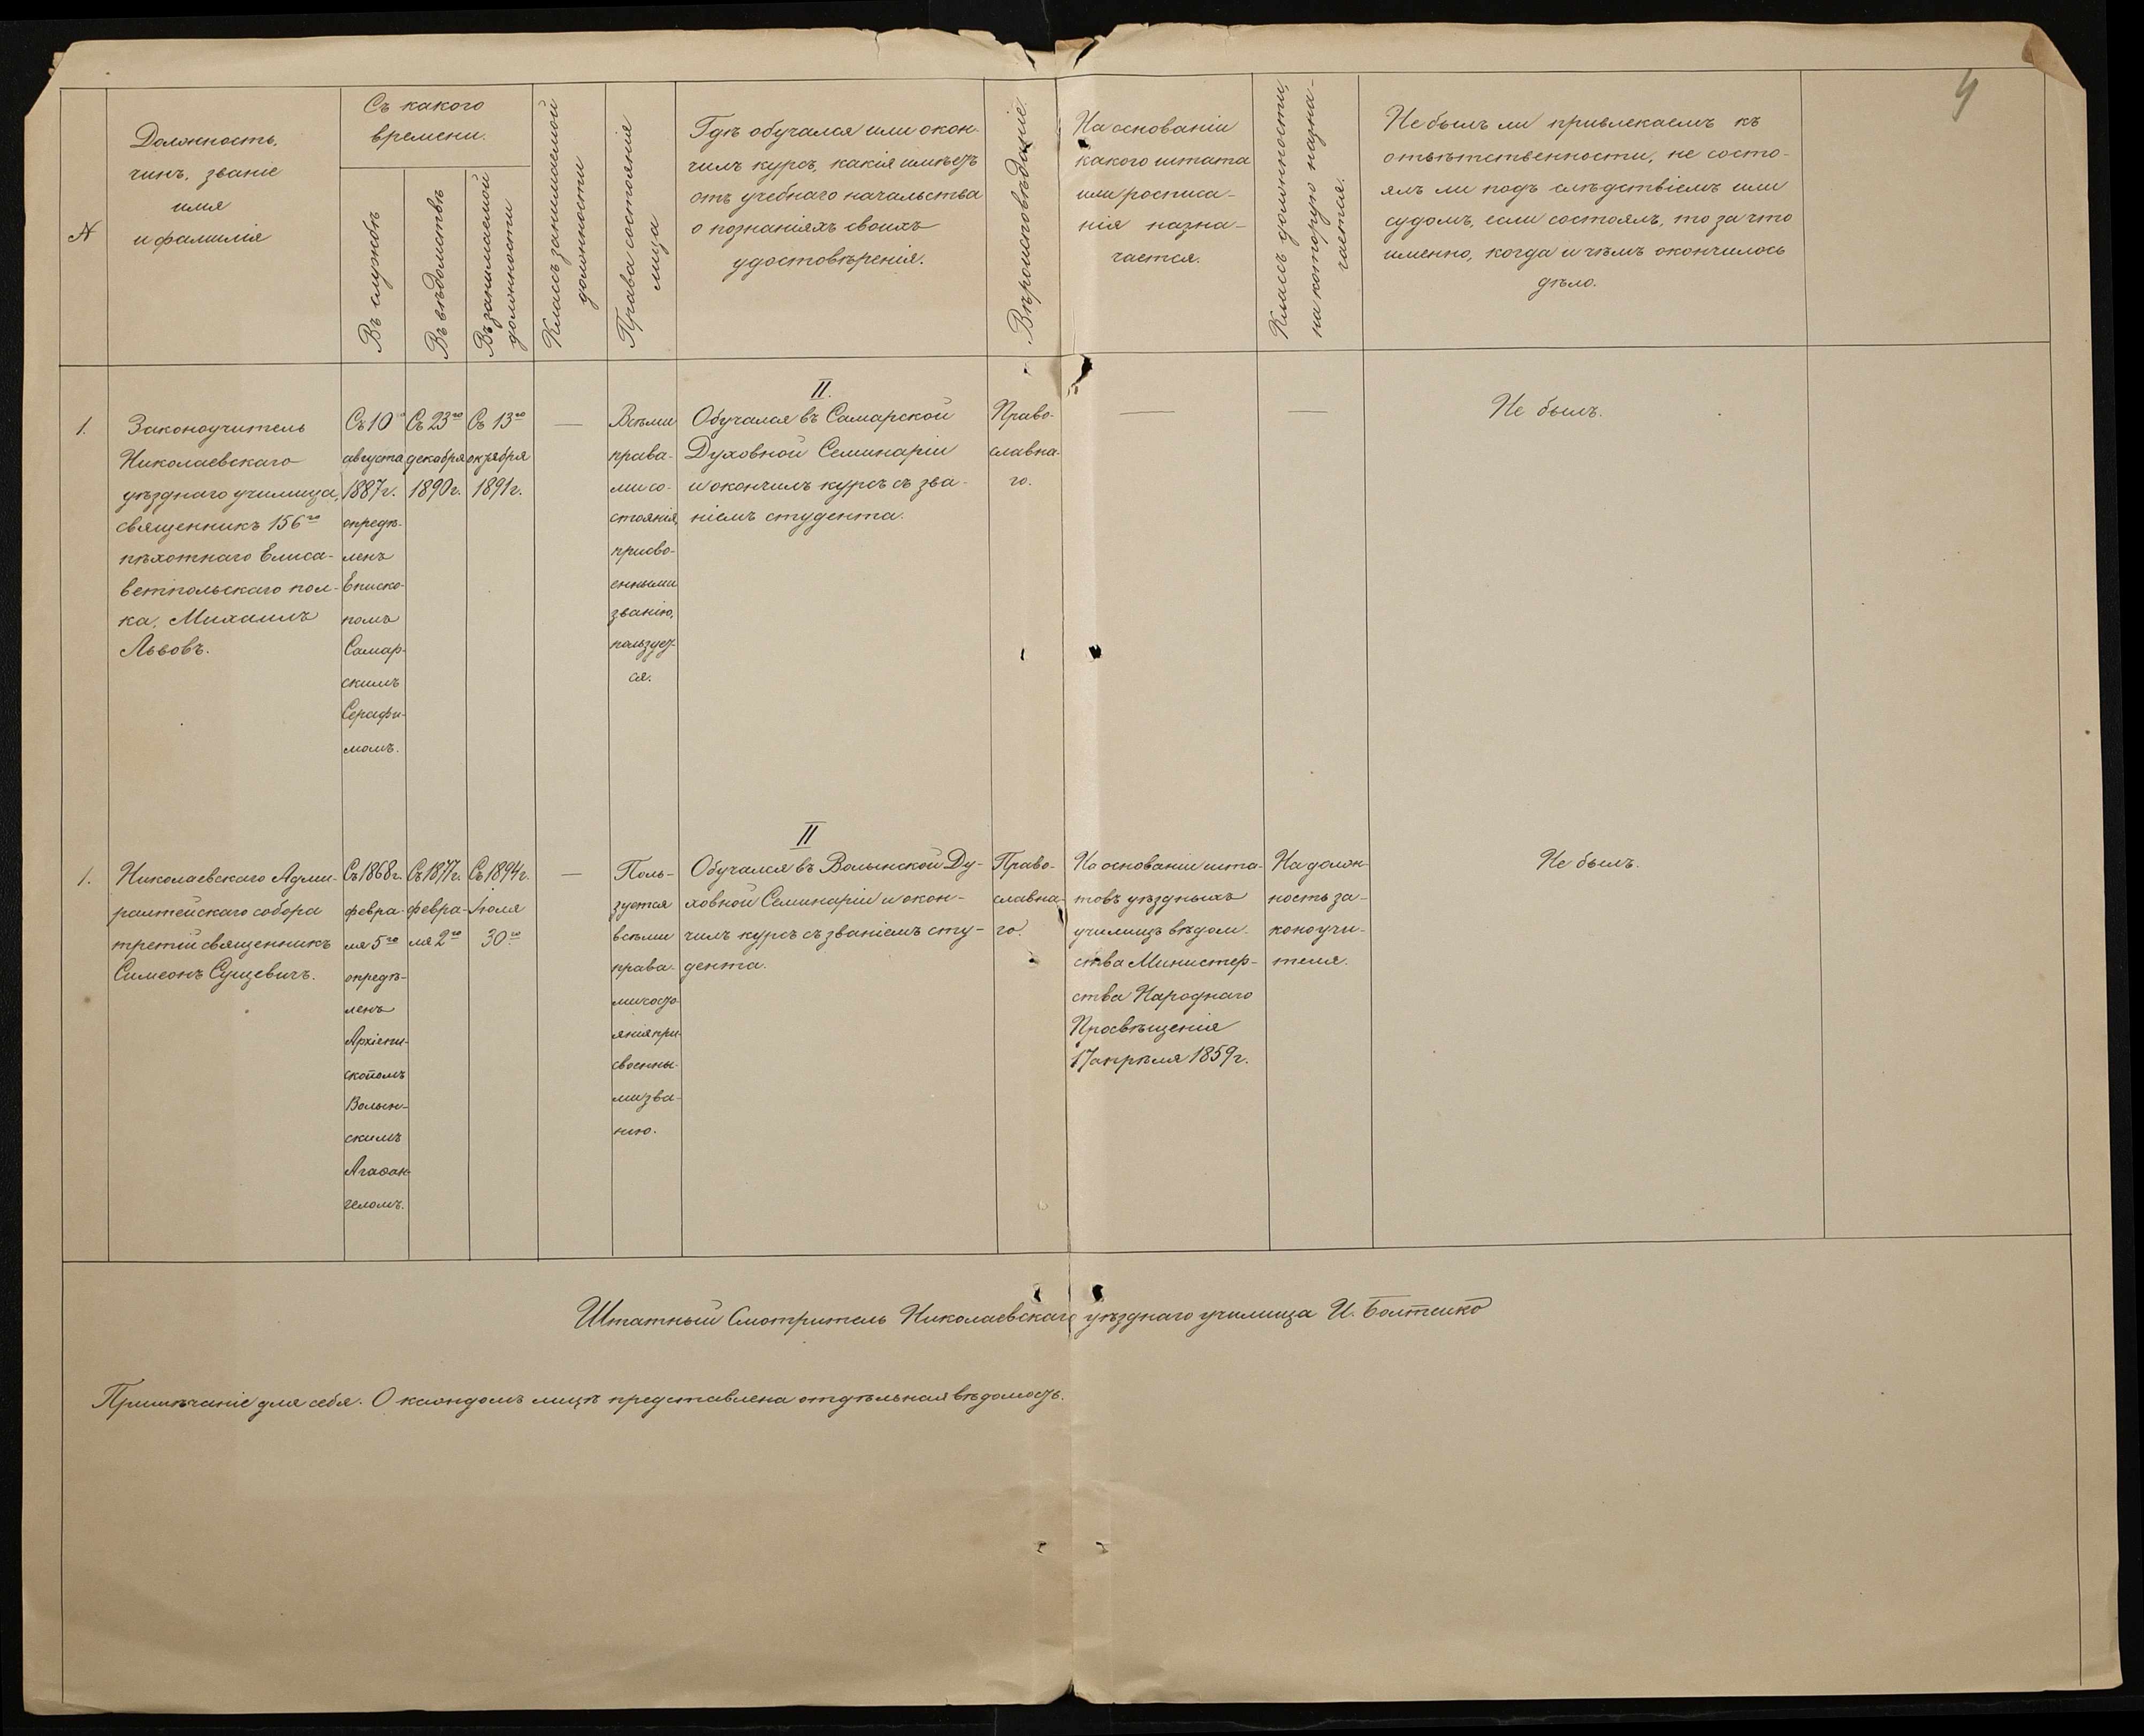 4
№
Должность,
чинъ, званіе
имя
и фамилія
Съ какого
времени.
Въ службѣ
Въ вѣдомствѣ
Въ занимаемой
должности
Классъ занимаемой
должности
Права состоянія
лица
Гдѣ обучался или окон-
чилъ курсъ, какія имѣетъ
отъ учебнаго начальства
о познаніяхъ своихъ
удостовѣренія.
Вѣроисповѣданіе.
На основаніи
какого штата
или росписа-
нія назна-
чается.
Классъ должности,
на которую назна-
чается.
Не былъ ли привлекаемъ къ
отвѣтственности, не состо-
ялъ ли подъ слѣдствіемъ или
судомъ, если состоялъ, то за что
именно, когда и чѣмъ окончилось
дѣло.
1.
Законоучитель
Николаевскаго
уѣзднаго училища,
священникъ 156го
пѣхотнаго Елиса-
ветпольскаго пол-
ка, Михаилъ
Львовъ.
Съ 10
августа
1887 г.
опредѣ-
ленъ
Еписко-
помъ
Самар-
скимъ
Серафи-
момъ.
Съ 23го
декабря
1890 г.
Съ 13го
октября
1891 г.
—
Всѣми
права-
ми со-
стоянія,
присво-
енными
званію,
пользует-
ся.
II.
Обучался въ Самарской
Духовной Семинаріи
и окончилъ курсъ съ зва-
ніемъ студента.
Право-
славна-
го.
—
—
Не былъ.
1.
Николаевскаго Адми-
ралтейскаго собора
третій священникъ
Симеонъ Сущевичъ.
Съ 1868 г.
февра-
ля 5го
опредѣ-
ленъ
Архіепи-
скопомъ
Волын-
скимъ
Агаѳан-
геломъ.
Съ 1877 г.
февра-
ля 2го
Съ 1894 г.
Іюля
30го
—
Поль-
зуется
всѣми
права-
ми состо-
янія при-
своенны-
ми зва-
нію.
II
Обучался въ Волынской Ду-
ховной Семинаріи и окон-
чилъ курсъ съ званіемъ сту-
дента.
Право-
славна-
го.
На основаніи шта-
товъ уѣздныхъ
училищъ вѣдом-
ства Министер-
ства Народнаго
Просвѣщенія
17 апрѣля 1859 г.
На долж-
ность за-
коноучи-
теля.
Не былъ.
Штатный Смотритель Николаевскаго уѣзднаго училища И. Болтенко
Примѣчаніе для себя. О каждомъ лицѣ представлена отдѣльная вѣдомость.